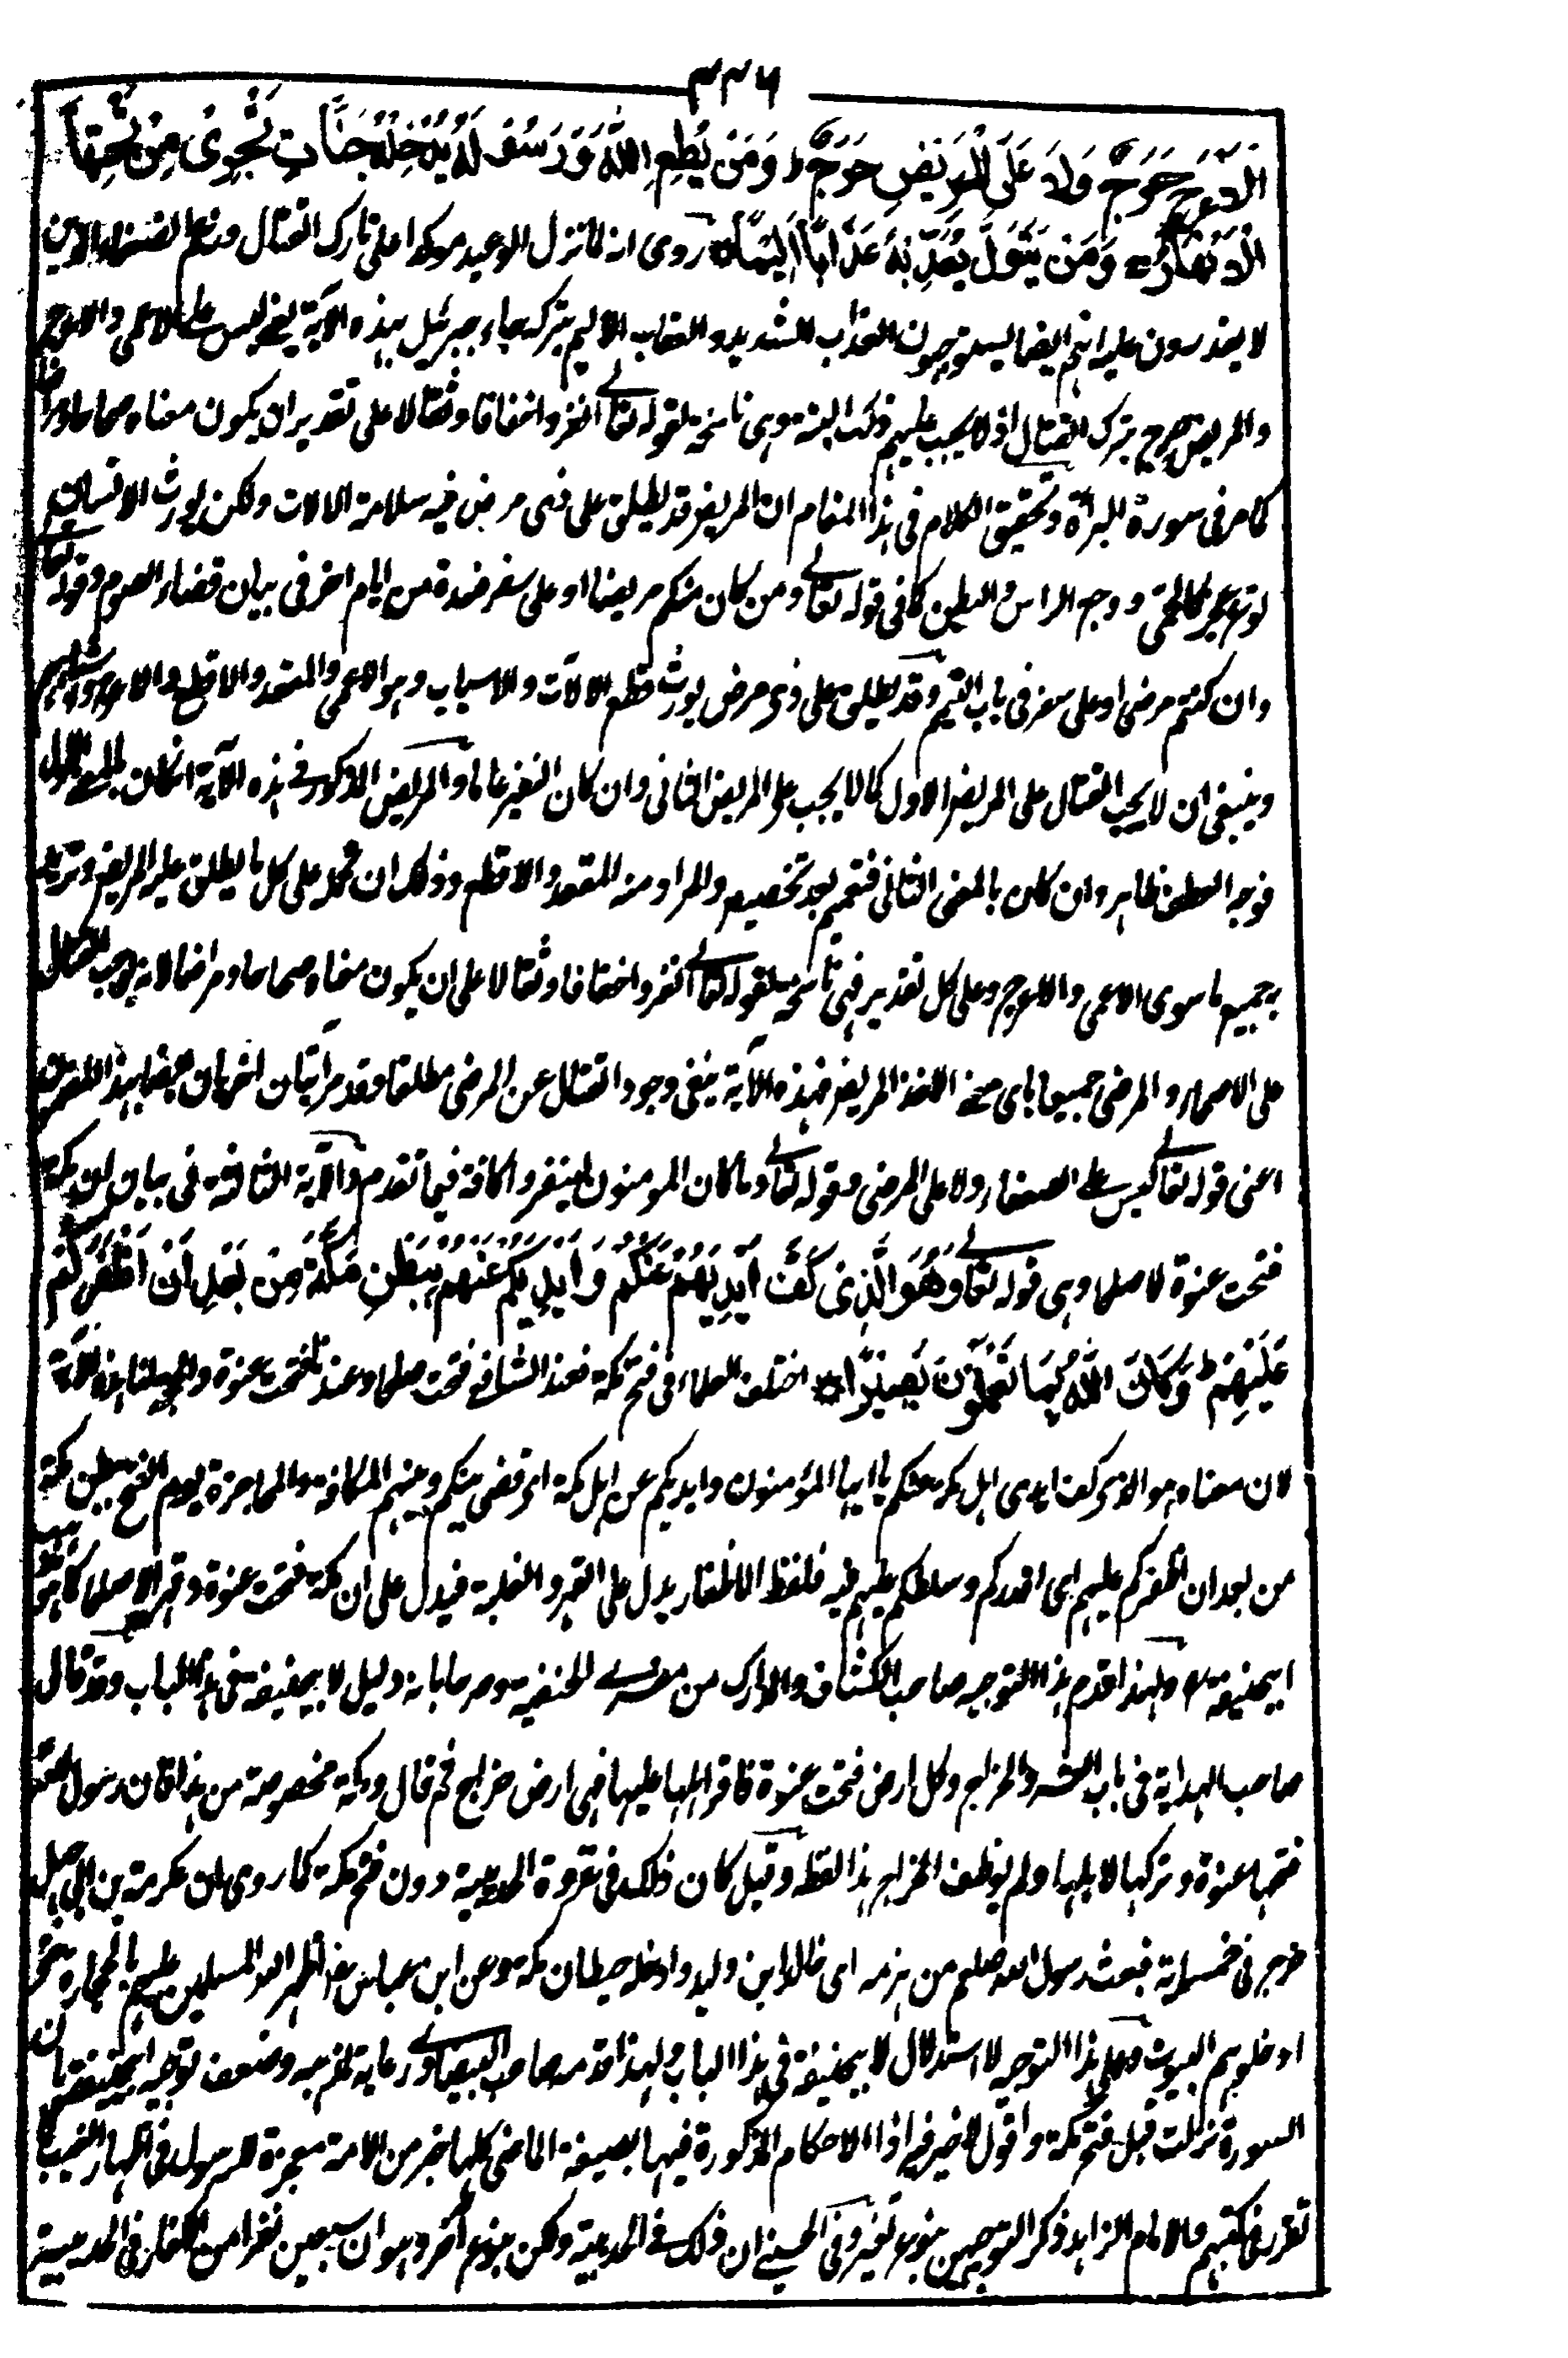 ٣٣٦
الاعرج حَرَجٌ وَلَا عَلَى الْمَرِيْضِ حَرَجٌ ط وَمَنْ يُّطِعِ اللّٰهَ وَرَسُوْلَهٗ يُدْخِلْهُ جَنَّاتٍ تَجْرِىْ مِنْ تَحْتِهَا
الْاَنْهَارُ وَمَنْ يَّتَوَلَّ يُعَذِّبْهُ عَذَابًا اَلِيْمًا روى انه لما نزل الوعيد موكدا على تارك القتال
لا يقدرون عليه انهم ايضا يستوجبون العذاب الشديد والعقاب الاليم بتركه جاء جبرئيل بهذه الآية يعنى ليس على الاعمى والاعرج
والمريض حرج بترك القتال اذ لا يجب عليهم ذلك البتة وهى ناسخة لقوله تعالى انفروا خفافا وثقالا على تقدير ان يكون معناه صحاحا ومراضا
كما مر فى سورة البرأة وتحقيق الكلام فى هذا المقام ان المريض قد يطلق على ذى مرض فيه سلامة الالات ولكن يورث الانسان
نوع عجز كالحمى ووجع الراس والبطن كما فى قوله تعالى ومن كان منكم مريضا او على سفر فعدة من ايام اخر فى بيان قضاء الصوم وقوله تعالى
وان كنتم مرضى او على سفر فى باب التيمم وقد يطلق على ذى مرض يورث قطع الالات والاسباب وهو الاعمى والمقعد والاقطع والاعرج
وينبغى ان لا يجب القتال على المريض الاول كما لا يجب على المريض الثانى وان كان النفير عاما والمريض المذكور فى هذه الآية ان كان بالمعنى الاول
فوجه العطف ظاهر وان كان بالمعنى الثانى فتعميم بعد تخصيص والمراد منه المقعد والاقطع وذلك ان تحمله على كل ما يطلق عليه المريض
جميع ما سوى الاعمى والاعرج وعلى كل تقدير فهى ناسخة لقوله تعالى انفروا خفافا وثقالا على ان يكون معناه صحاحا ومراضا لانه يوجب القتال
على الاصحاء والمرضى جميعا باى معنى اخذ المريض فهذه الآية ينفى وجود القتال عن المرضى مطلقا وقد مر آيتان اخريان
اعنى قوله تعالى ليس على الضعفاء ولا على المرضى وقوله تعالى وما كان المومنون لينفروا كافة فيما تقدم والآية الثانية فى بيان ان مكة
فتحت عنوة لا صلحا وهى قوله تعالى وَهُوَ الَّذِىْ كَفَّ اَيْدِيَهُمْ عَنْكُمْ وَاَيْدِيَكُمْ عَنْهُمْ بِبَطْنِ مَكَّةَ مِنْ بَعْدِ اَنْ اَظْفَرَكُمْ
عَلَيْهِمْ ط وَكَانَ اللّٰهُ بِمَا تَعْمَلُوْنَ بَصِيْرًا اختلف العلماء فى فتح مكة فعند الشافعى فتحت صلحا وعندنا فتحت عنوة والحجة لنا هذه الآية
لان معناه هو الذى كف ايدى اهل مكة عنكم يا ايها المؤمنون وايديكم عن اهل مكة اى قضى بينكم وبينهم المكافة والمحاجزة يوم الفتح ببطن مكة
من بعد ان اظفركم عليهم اى اقدركم وسلطكم عليهم فيه فلفظ الاظفار يدل على القهر والغلبة فيدل على ان مكة فتحت عنوة وقهرا لا صلحا كما هو
ابيحنيفة ولهذا قدم هذا التوجيه صاحب الكشاف والمدارك من الحنفية وصرحا بانه دليل لابيحنيفة فى هذا الباب وقد قال
صاحب الهداية فى باب العشر والخراج وكل ارض فتحت عنوة فاقر اهلها عليها فهى ارض خراج ثم قال ومكة مخصوصة من هذا فان رسول الله
فتحها عنوة وتركها لاهلها ولم يوظف الخراج هذا لفظه وقيل كان ذلك فى غزوة الحديبية دون فتح مكة كما روى ان عكرمة بن ابى جهل
خرج فى خمسمائة فبعث رسول الله صلعم من هزمه اى خالد ابن وليد وادخله حيطان مكة وعن ابن عباس اظهر الله المسلمين عليهم بالحجارة حتى
ادخلوهم البيوت وعلى هذا التوجيه لا استدلال لابيحنيفة فى هذا الباب ولهذا قدمه صاحب البيضاوى رعاية لمذهبه وضعف توجيه ابيحنيفة بان
السورة نزلت قبل فتح مكة واقول لا ضير فيه اذ الاحكام المذكورة فيها بصيغة الماضى كلها معجزة للرسول فى اظهار الغيب
تقرر فى كتبهم والامام الزاهد ذكر التوجيهين بنوع تغير وفى الحسينى ان ذلك فى الحديبية ولكن بنوع آخر وهو ان سبعين نفرا من الكفار فى الحديبية